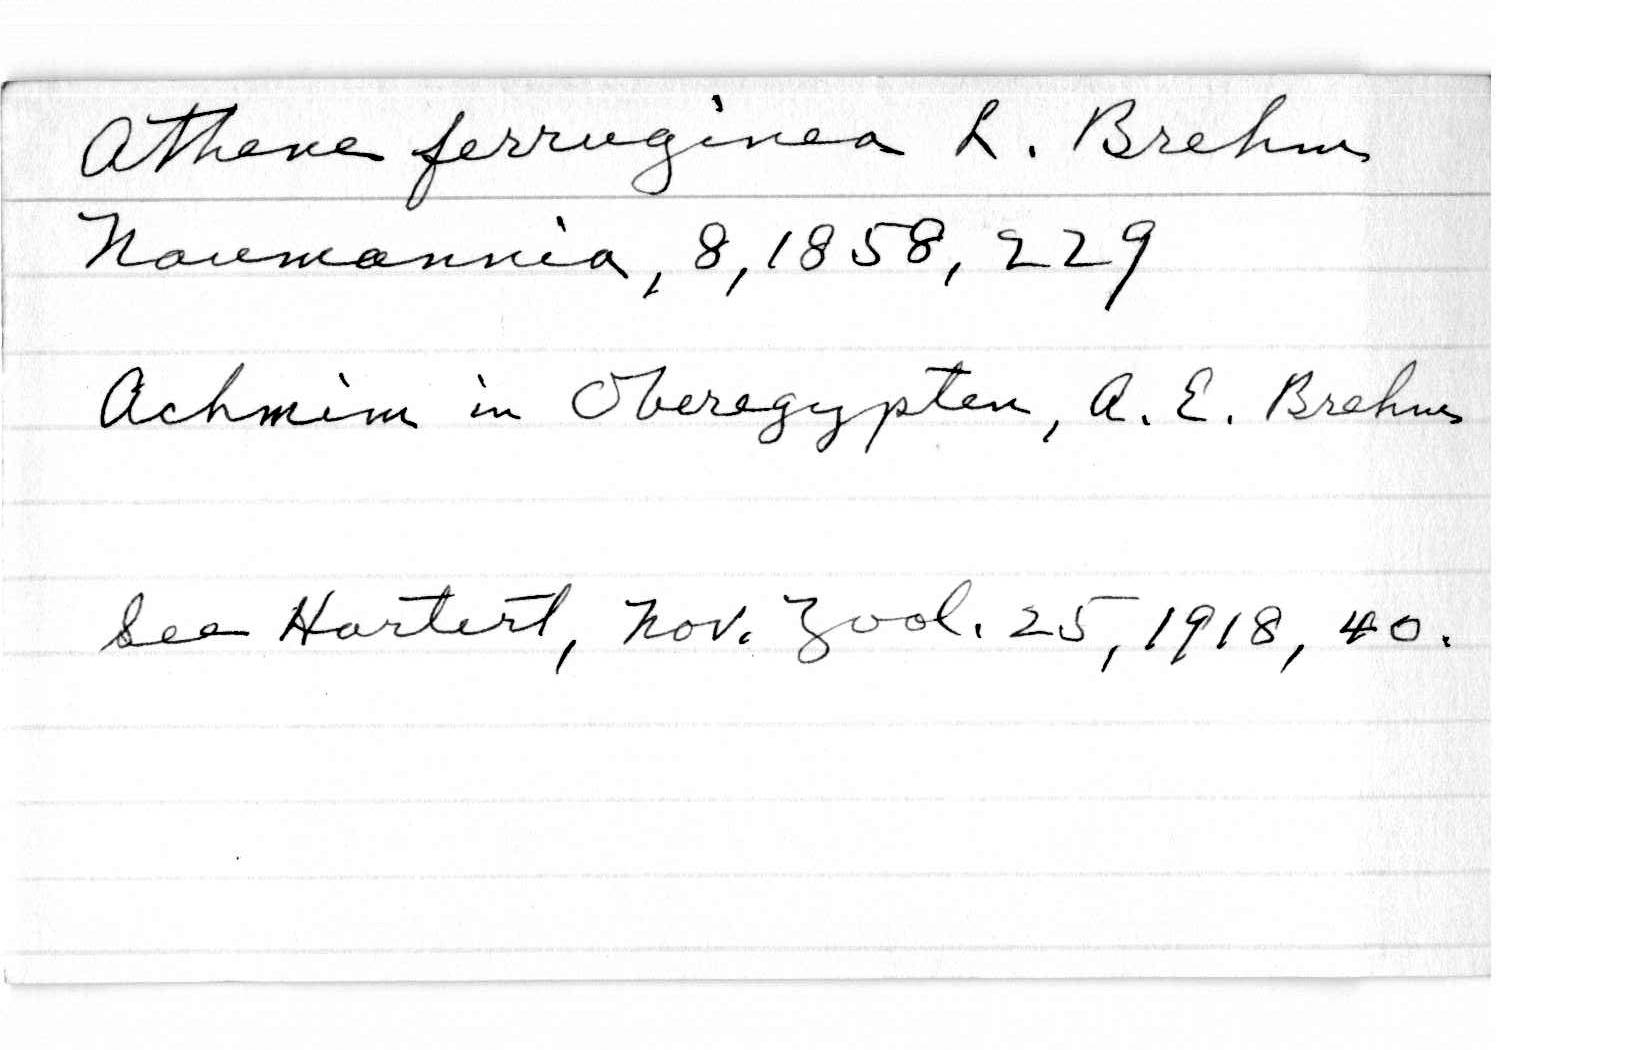 Athene ferruginea L. Brehm
Naumannia, 8, 1858, 229
Achmim in Oberegypten, A. E. Brehm
See Hartert, Nov. Zool. 25, 1918, 40.